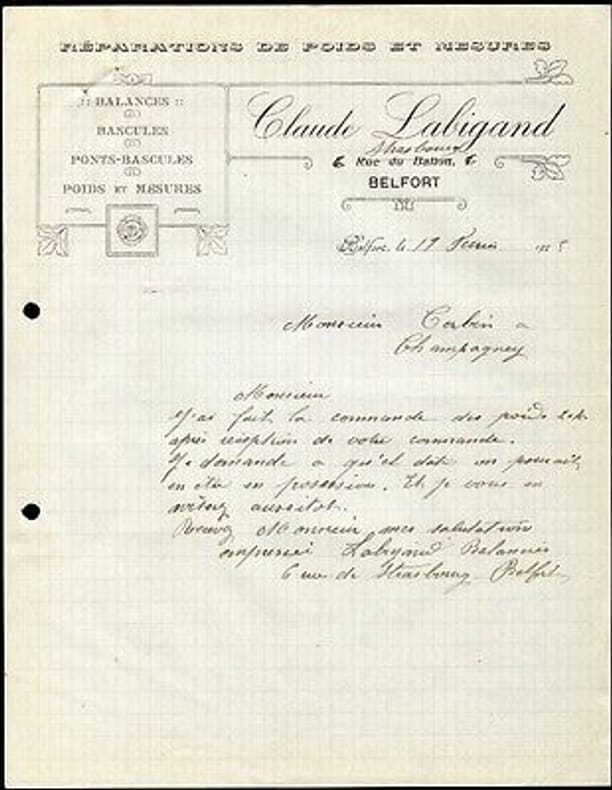 RÉPARATIONS DE POIDS ET MESURES
:: BALANCES ::
BASCULES
PONTS-BASCULES
POIDS ET MESURES
Claude Labigand
Strasbourg
6 Rue du Ballon, 6
BELFORT
Belfort, le 17
Monsieur Corbin a
Champagney
Monsieur
J'ai fait la commande des poids
après réception de votre commande.
Je demande a qu'el date on pourrait
en être en possession. Et je vous en
aussitot.
Recevez Monsieur mes salutation
empressé Labigand Balancier
6 rue de Strasbourg Belfort